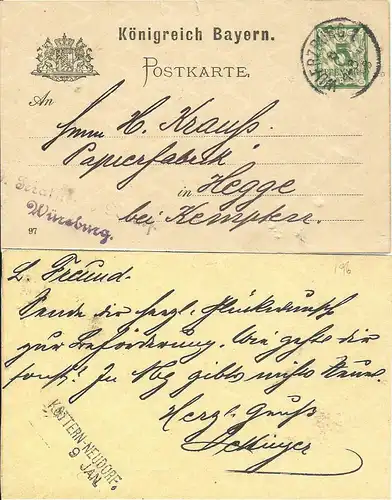 Königreich Bayern.
POSTKARTE.
5
An
Herrn H. Krauß.
Papierfabrik
in Hegge
bei Kempten.
Würzburg.
97
L. Freund.
Sende dir herzl. Glückwunsch
zur Beförderung. Wie geht's dir
sonst? In Nbg gibts nichts Neues.
Herzl. Gruß
KATTERN-NEUDORF.
9
JAN.